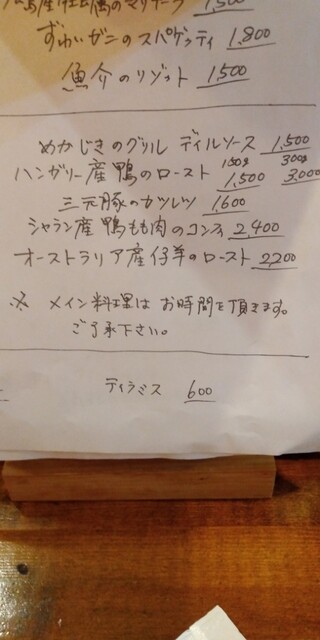 ずわいガニのスパゲッティ 1,800
魚介のリゾット 1,500
めかじきのグリル ディルソース 1,500
150g 300g
ハンガリー産鴨のロースト 1,500 3,000
三元豚のカツレツ 1,600
シャラン産鴨もも肉のコンフィ 2,400
オーストラリア産仔羊のロースト 2,200
※ メイン料理はお時間を頂きます。
ご了承下さい。
ティラミス 600